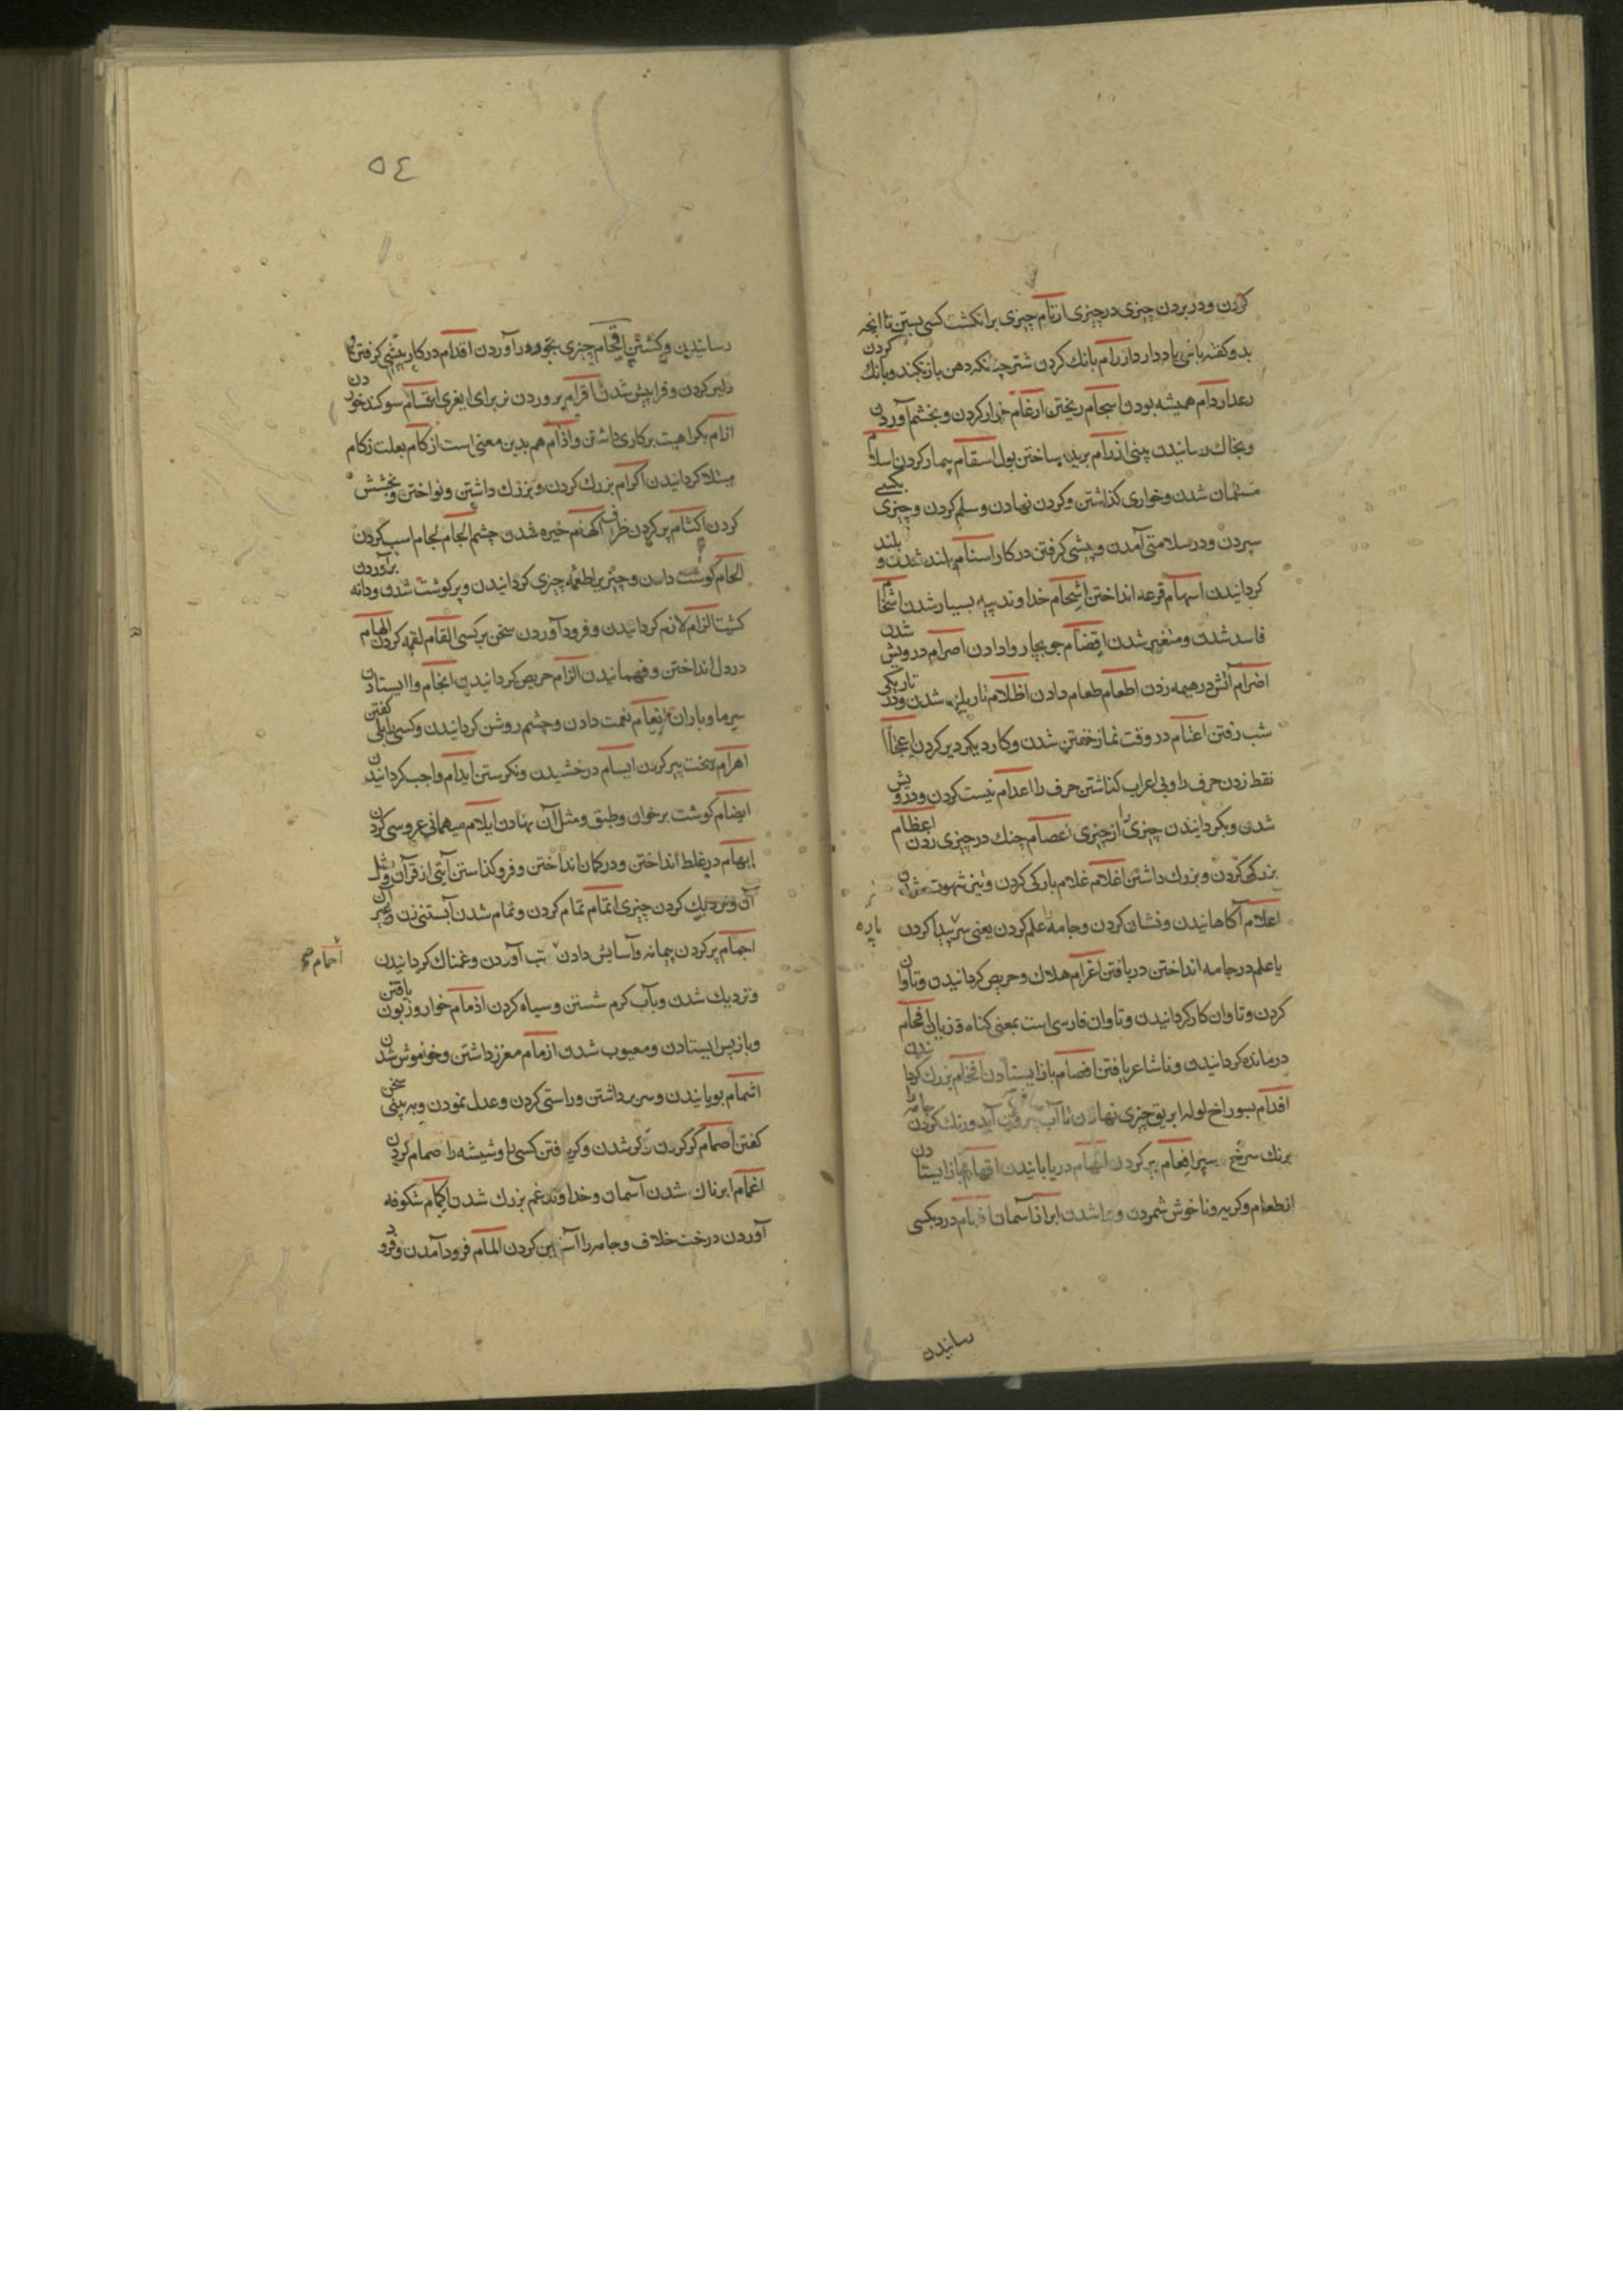 كردن و در بردن چیزی در چیزی ارتام چیزی بر انكشت كسی بستن تا انچه
بدو كفته باشی یاد دارد ازرام بانك كردن شتر چنانكه دهن باز نكند و بانك كردن
رعد اردام همیشه بودن اسجام ریختن ارغام خوار كردن و بخشم آوردن
و بخاك رسانیدن بینی ازرام بریده ساختن بول اسقام بیمار كردن اسلام
مسلمان شدن و خواری كذاشتن و كردن نهادن و سلم كردن و چیزی بكسی
سپردن و در سلامتی آمدن و پیشی كرفتن در كار اسنام بلند شدن و بلند
كردانیدن اسهام قرعه انداختن اشحام خداوند پیه بسیار شدن اشخام
فاسد شدن و متغیر شدن اقضام جو بچاروا دادن اصرام درویش شدن
اضرام آتش در هیمه زدن اطعام طعام دادن اظلام تاریك شدن و در تاریكی
شب رفتن اعتام در وقت نماز خفتن شدن و كار دیكر دیر كردن اعجام
نقط زدن حرف را و بی اعراب كذاشتن حرف را اعدام نیست كردن و درویش
شدن و بكردانیدن چیزی را از چیزی اعصام چنك در چیزی زدن اعظام
بزركی كردن و بزرك داشتن اغلام غلام باركی كردن و تیز شهوت شدن
اعلام آكاهانیدن و نشان كردن و جامه علم كردن یعنی سر پیدا كردن
پاره
یا علم در جامه انداختن دریافتن اغرام هلاك و حریص كردانیدن و تاوان
كردن و تاوان كار كردانیدن و تاوان فارسی است بمعنی كناه و زیان افحام
درمانده كردانیدن و ناشاعر یافتن افصام باز ایستادن افخام بزرك كردانیدن
افدام بسوراخ لوله ابریق چیزی نهادن تا آب بیرون آید و رنك كردن جامه را
برنك سرخ سیر افعام پر كردن اقهام باز ایستادن
از طعام و كریه و ناخوش شمردن و شدن ابر از آسمان در دیكسی
رسانیدن
٥٤
رسانیدن و كشتن اقحام چیزی بخود در آوردن اقدام در كار پیشی كرفتن و
دلیر كردن و فرا پیش شدن اقرام پروردن نر برای ایغری اقسام سوكند خوردن
ازام بكراهیت بر كاری داشتن و اذام هم بدین معنی است ازكام بعلت زكام
مبتلا كردانیدن اكرام بزرك كردن و بزرك داشتن و نواختن و بخشش
كردن اكتام پر كردن ظرف اكهام خیره شدن چشم الجام لجام اسب كردن
الحام كوشت دادن و چیز بر لطعمه چیزی كردانیدن و پر كوشت شدن و دانه برآوردن
كشت الزام لازم كردانیدن و فرود آوردن سخن بر كسی القام لقمه كردن الهام
در دل انداختن و فهمانیدن الزام حریص كردانیدن انجام وا ایستادن
سرما و باران انعام نعمت دادن و چشم روشن كردانیدن و كسی را بلی كفتن
اهرام سخت پیر كردن ایسام درخشیدن و نكرستن ایدام واجب كردانیدن
ایضام كوشت بر خوان و طبق و مثل آن نهادن ایلام میهمانی عروسی كردن
ابهام در غلط انداختن و در كمان انداختن و فرو كذاشتن آیتی از قرآن و مثل
آن و نزدیك كردن چیزی اتمام تمام كردن و تمام شدن آبستنی زن و غیر آن
اجمام پر كردن پیمانه و آسایش دادن تب آوردن و غمناك كردانیدن
احمام صح
و نزدیك شدن و بآب كرم شستن و سیاه كردن اذمام خوار و زبون یافتن
و باز پس ایستادن و معیوب شدن ازمام مغزز داشتن و خواموش شدن
اشمام بویانیدن و سر برداشتن و راستی كردن و عدل نمودن و به بینی سخن
كفتن اصمام كر كردن و كر شدن و كر یافتن كسی را و شیشه را صمام كردن
اغمام ابرناك شدن آسمان و خداوند غم بزرك شدن اكمام شكوفه
آوردن درخت خلاف و جامه را آستین كردن المام فرود آمدن و فرود